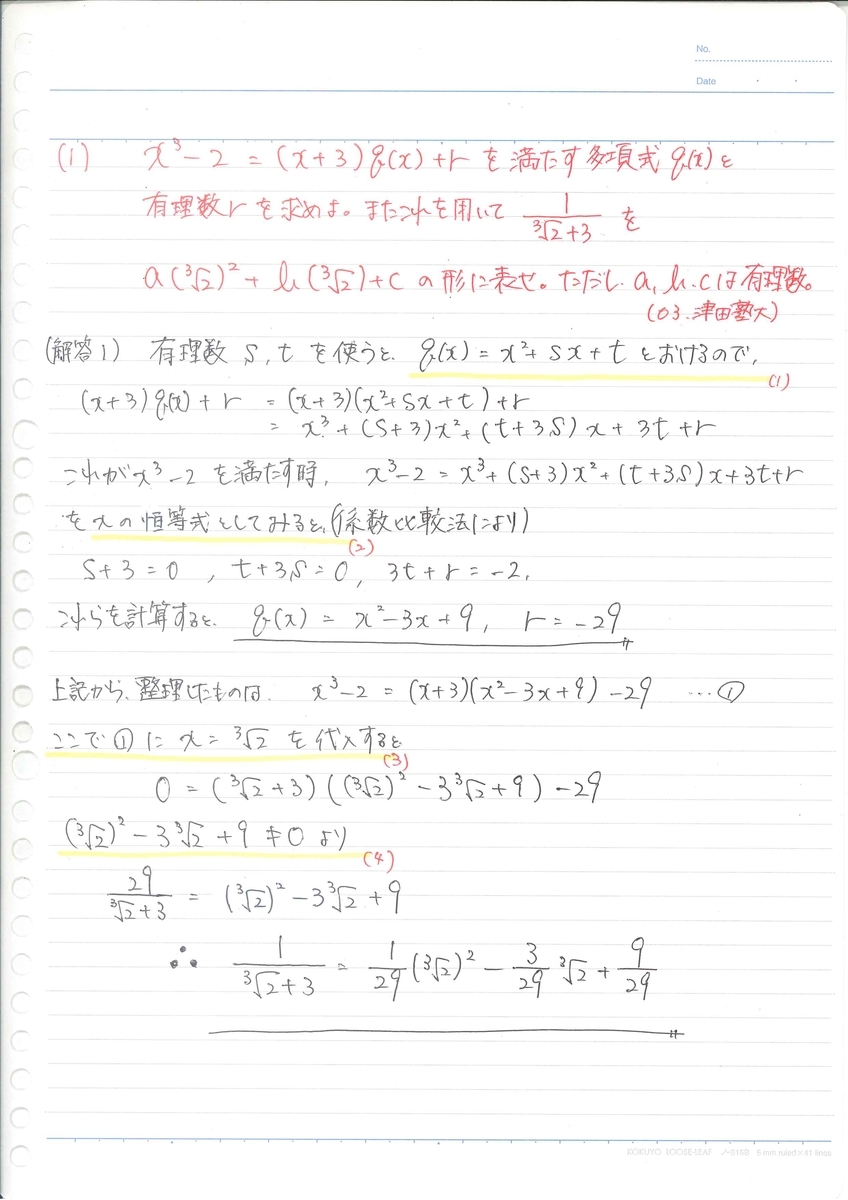 No.
Date
(1) x³-2 = (x+3)q(x)+r を満たす多項式 q(x)と
有理数rを求めよ。またこれを用いて 1/(³√2+3) を
a(³√2)²+b(³√2)+c の形に表せ。ただし a, b, cは有理数。
(03.津田塾大)
(解答1) 有理数 s, t を使うと、q(x) = x²+sx+t とおけるので、
(1)
(x+3)q(x)+r = (x+3)(x²+sx+t)+r
= x³+(s+3)x²+(t+3s)x+3t+r
これがx³-2 を満たす時、 x³-2 = x³+(s+3)x²+(t+3s)x+3t+r
を xの恒等式としてみると、(係数比較法により)
(2)
s+3=0 , t+3s=0, 3t+r=-2,
これらを計算すると、 q(x) = x²-3x+9, r=-29
上記から、整理したものは、 x³-2 = (x+3)(x²-3x+9)-29 …①
ここで①に x=³√2 を代入すると
(3)
0 = (³√2+3)((³√2)²-3³√2+9)-29
(³√2)²-3³√2+9≠0 より
(4)
29/(³√2+3) = (³√2)²-3³√2+9
∴ 1/(³√2+3) = 1/29(³√2)² - 3/29 ³√2 + 9/29
KOKUYO LOOSE-LEAF ノ-816B 6 mm ruled×41 lines